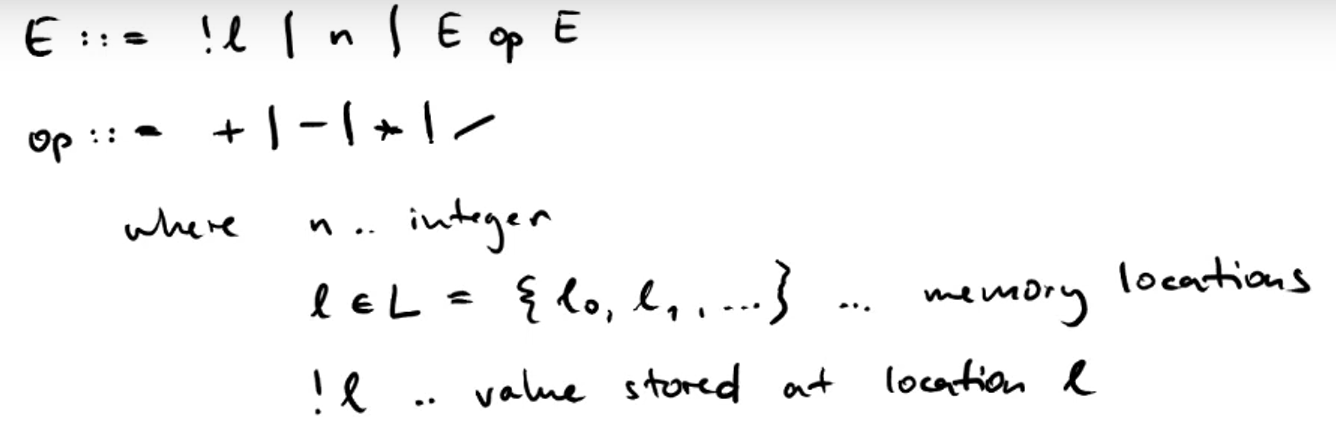 E ::= !l | n | E op E
op ::= + | - | * | /
where n .. integer
l ∈ L = { l0, l1, ... } ... memory locations
!l .. value stored at location l